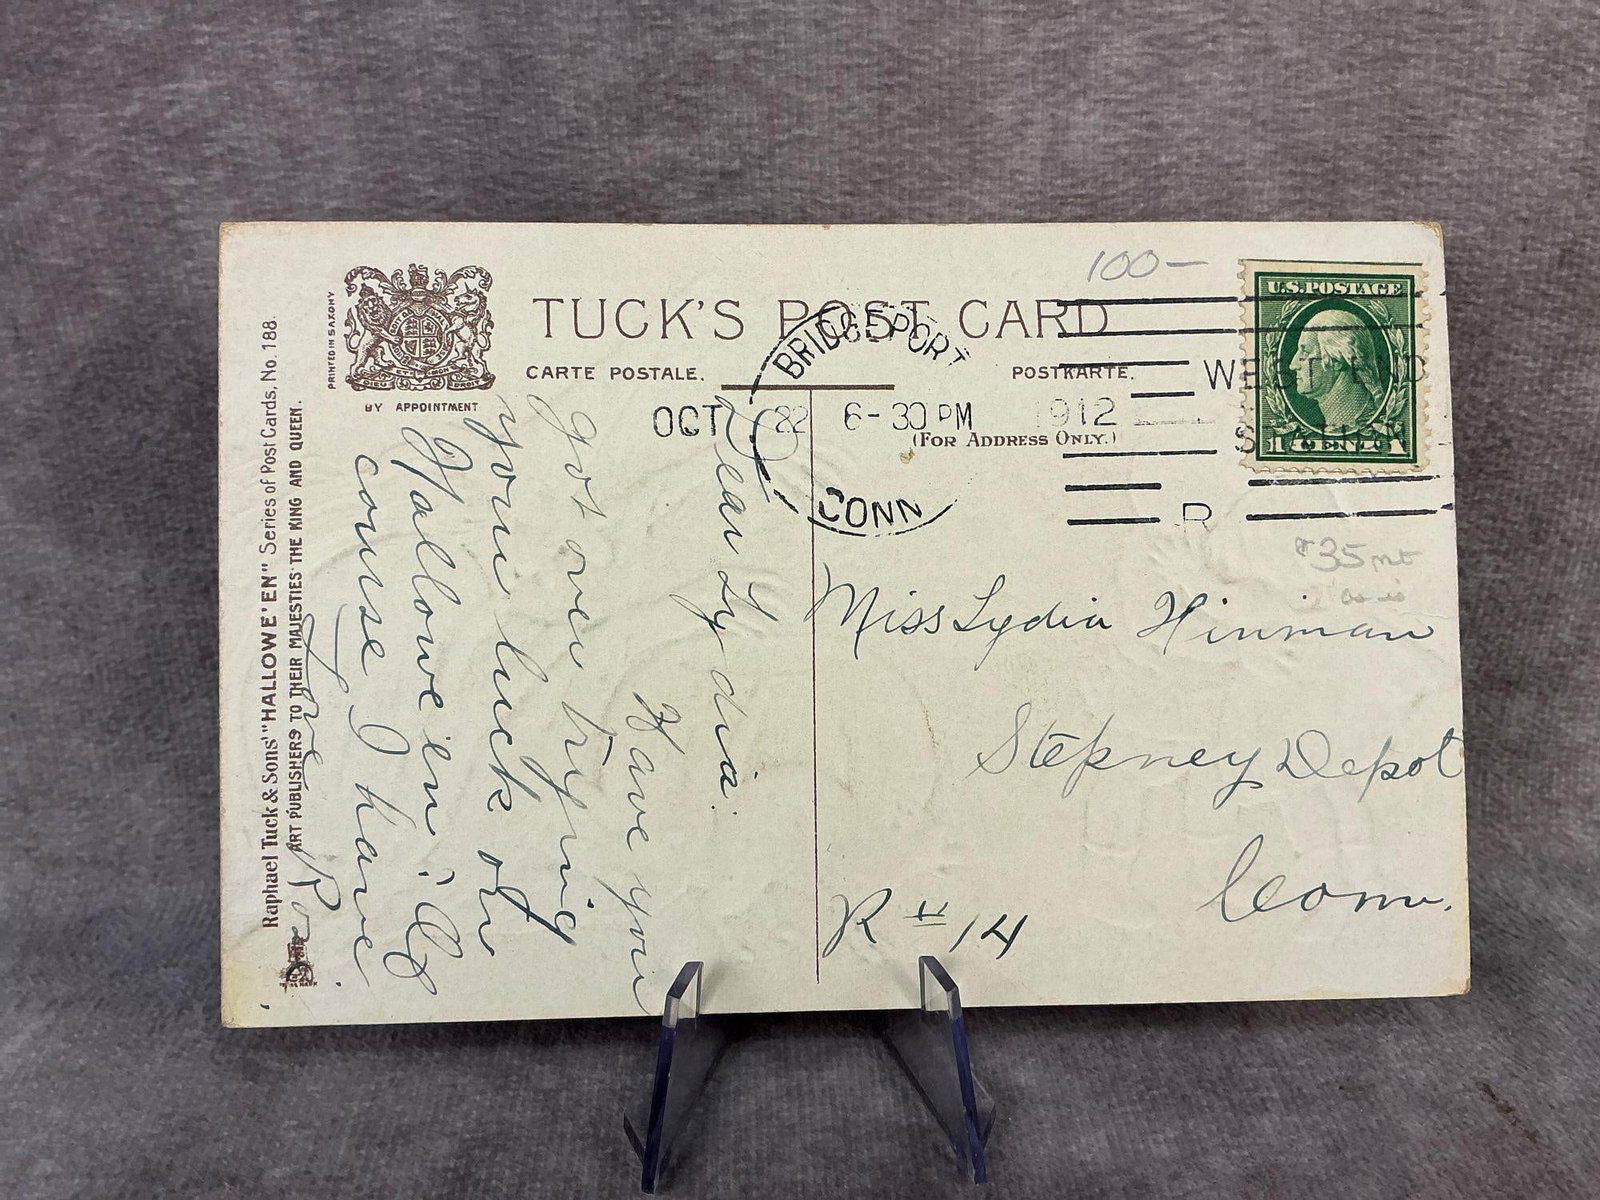 TUCK'S POST CARD
CARTE POSTALE.
POSTKARTE.
(FOR ADDRESS ONLY.)
PRINTED IN SAXONY
BY APPOINTMENT
Raphael Tuck & Sons' "HALLOWE'EN" Series of Post Cards, No. 188.
ART PUBLISHERS TO THEIR MAJESTIES THE KING AND QUEEN.
100-
U.S. POSTAGE
1 CENT 1
BRIDGEPORT
OCT 22 6-30 PM 1912
CONN
WEST END
STATION
R
$35 mt
as is
Dear Lydia.
Have you
got over trying
your luck on
Hallowe'en? Of
course I have
Love Roz.
Miss Lydia Hinman
Stepney Depot
Conn.
R # 14